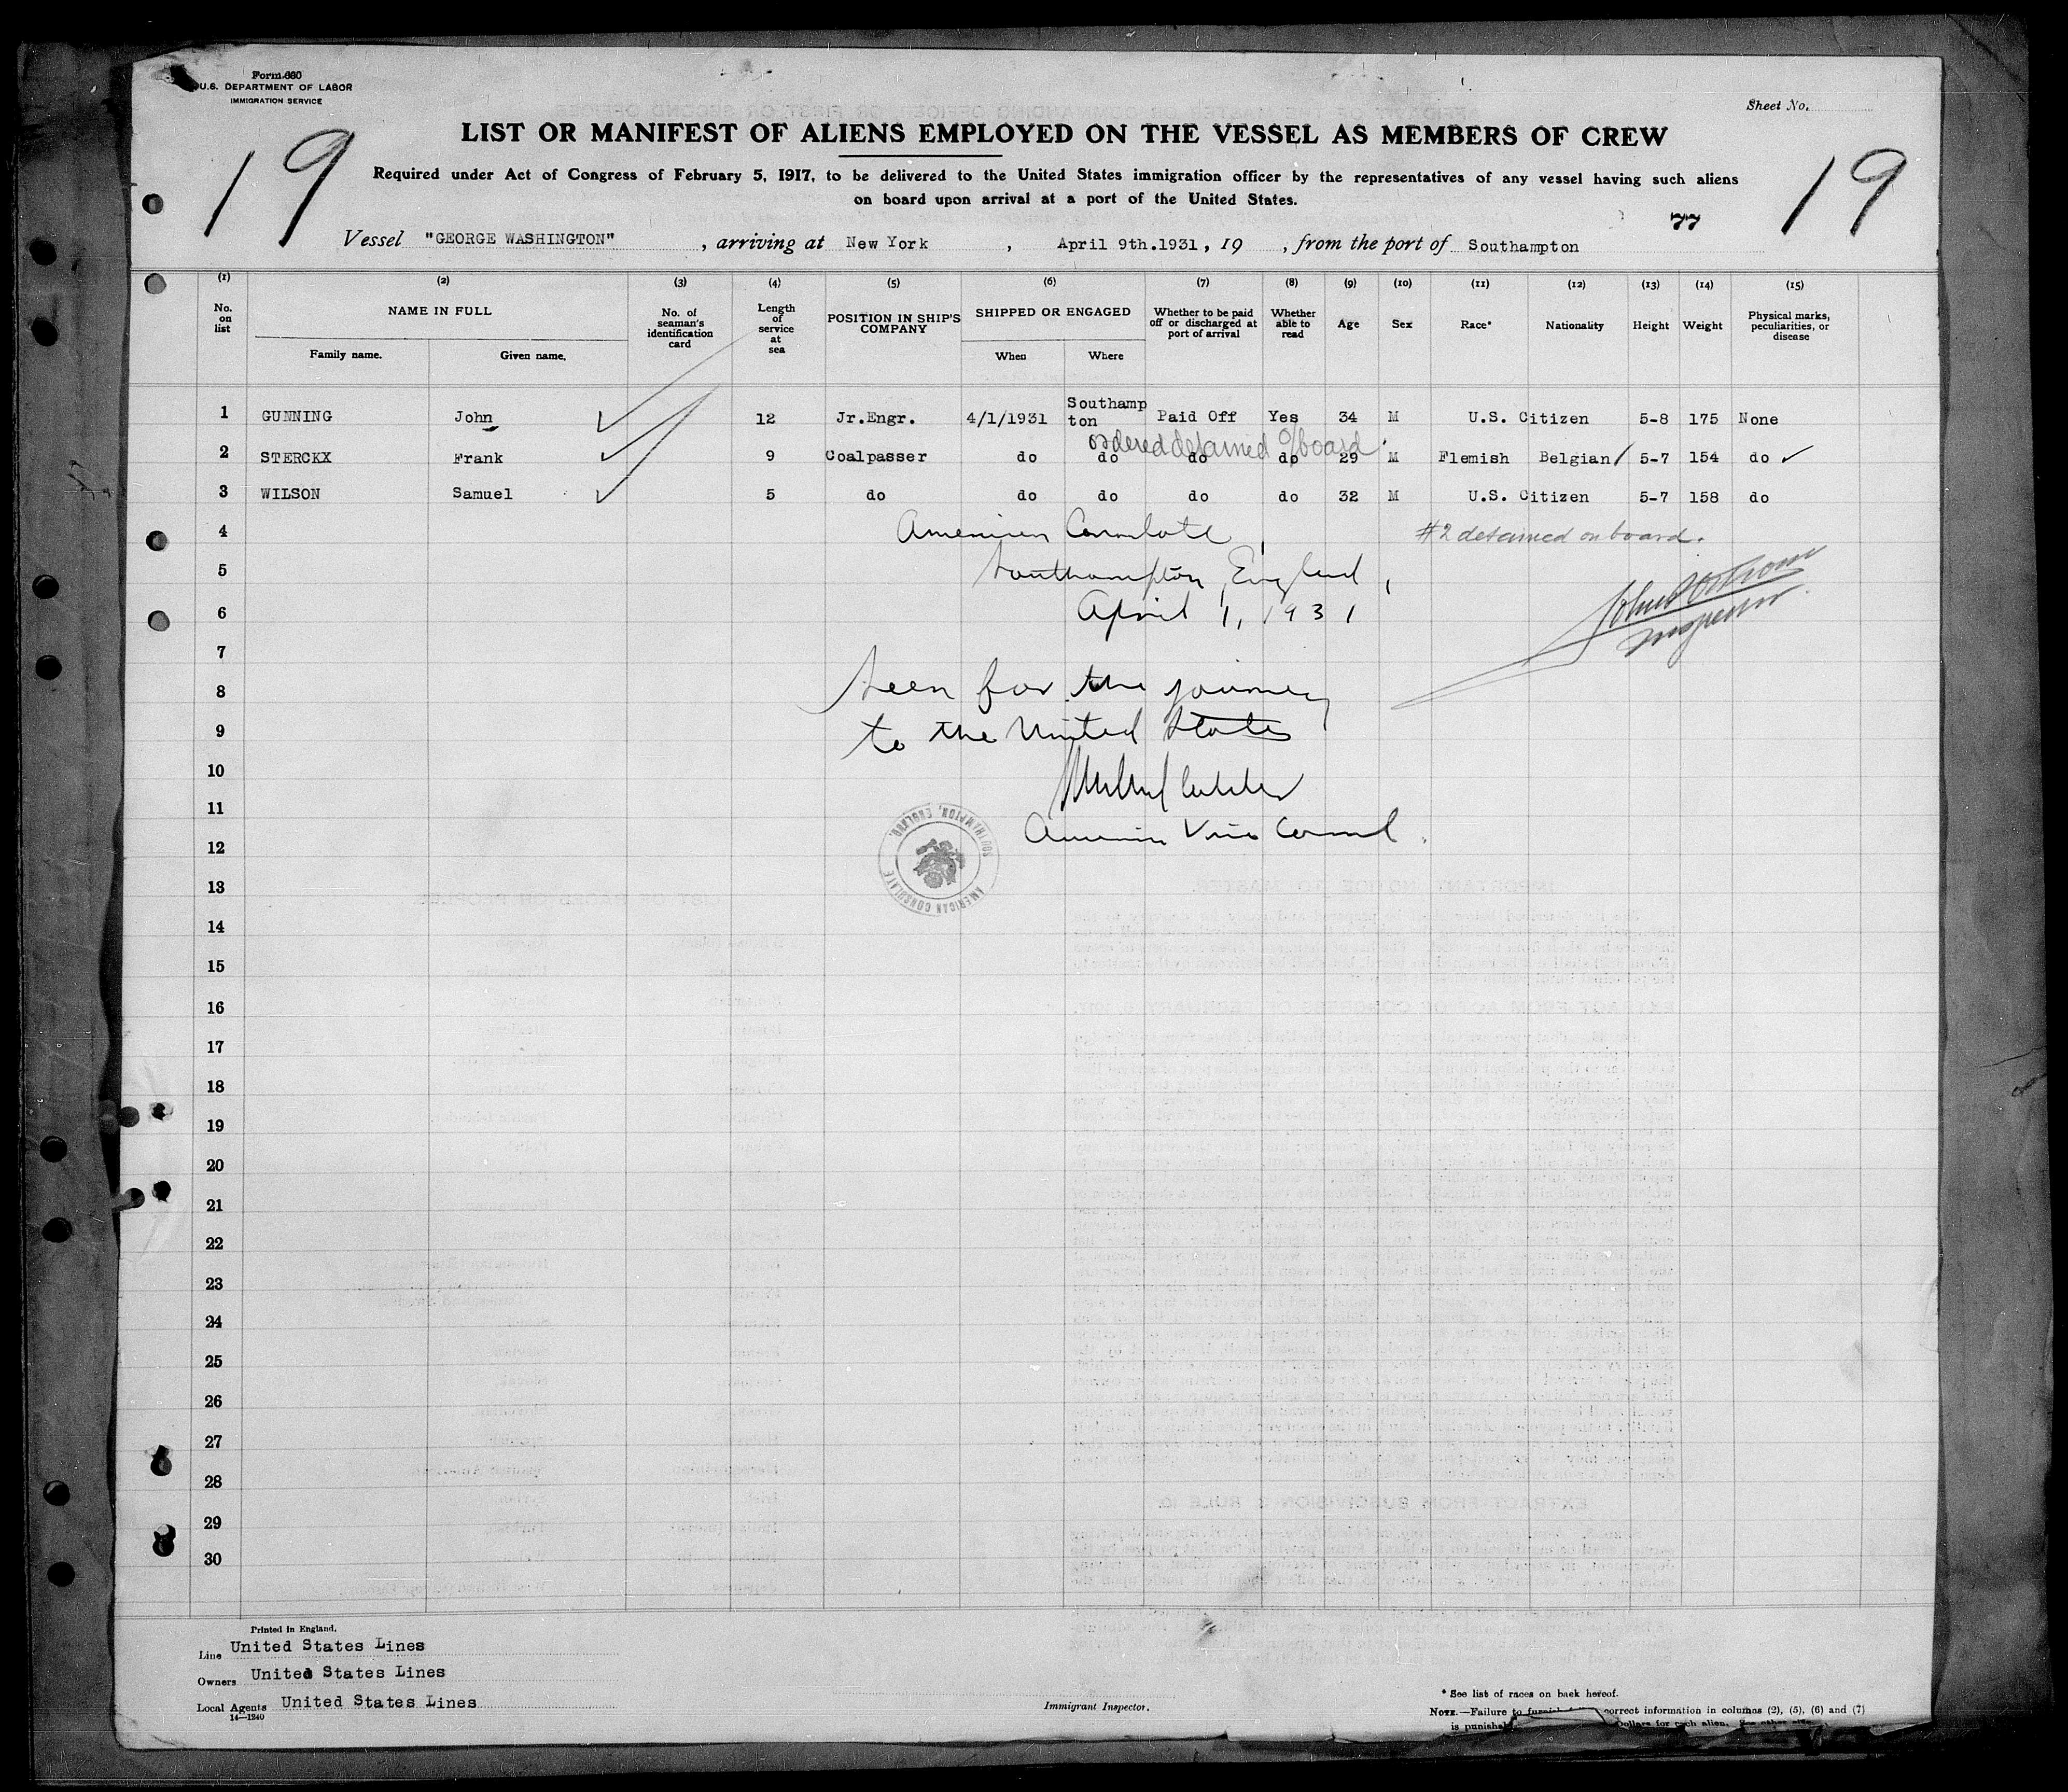 Form 680
U.S. DEPARTMENT OF LABOR
IMMIGRATION SERVICE
Sheet No.
19
19
LIST OR MANIFEST OF ALIENS EMPLOYED ON THE VESSEL AS MEMBERS OF CREW
Required under Act of Congress of February 5, 1917, to be delivered to the United States immigration officer by the representatives of any vessel having such aliens
on board upon arrival at a port of the United States.
77
Vessel "GEORGE WASHINGTON", arriving at New York, April 9th.1931, 19 , from the port of Southampton
(1) (2) (3) (4) (5) (6) (7) (8) (9) (10) (11) (12) (13) (14) (15)
No. on list
NAME IN FULL
Family name. Given name.
No. of seaman's identification card
Length of service at sea
POSITION IN SHIP'S COMPANY
SHIPPED OR ENGAGED
When Where
Whether to be paid off or discharged at port of arrival
Whether able to read
Age
Sex
Race*
Nationality
Height
Weight
Physical marks, peculiarities, or disease
1 GUNNING John 12 Jr.Engr. 4/1/1931 Southampton Paid Off Yes 34 M U.S. Citizen 5-8 175 None
ordered detained o/board
2 STERCKX Frank 9 Coalpasser do do do do 29 M Flemish Belgian 5-7 154 do
3 WILSON Samuel 5 do do do do do 32 M U.S. Citizen 5-7 158 do
4
American Consulate,
#2 detained on board.
5
Southampton, England,
6
April 1, 1931
Inspector
7
8
Seen for the journey
9
to the United States
10
11
American Vice Consul
12
AMERICAN CONSULATE
SOUTHAMPTON, ENGLAND.
13
14
15
16
17
18
19
20
21
22
23
24
25
26
27
28
29
30
Printed in England.
Line United States Lines
Owners United States Lines
Local Agents United States Lines
14—1240
Immigrant Inspector.
* See list of races on back hereof.
NOTE.—Failure to furnish correct information in columns (2), (5), (6) and (7)
is punishable Dollars for each alien.